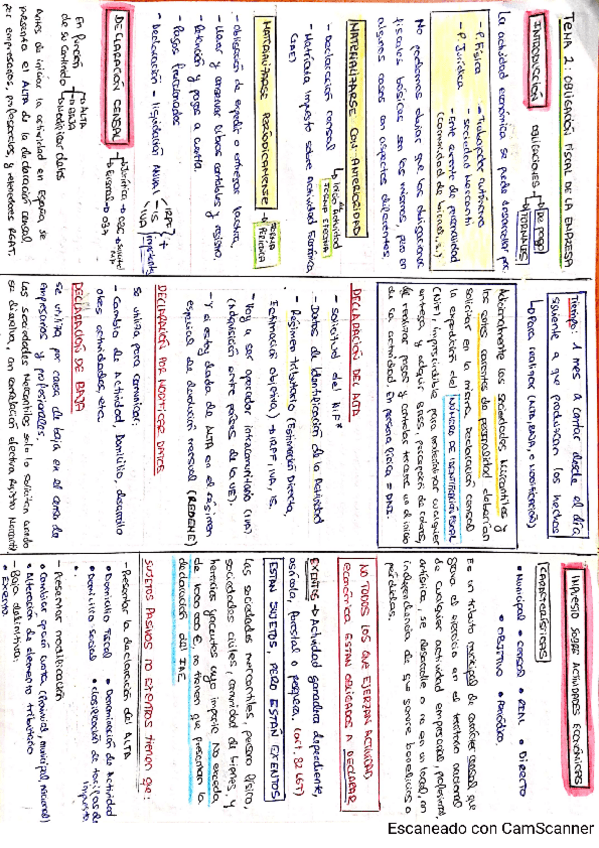 TEMA 2: OBLIGACIÓN FISCAL DE LA EMPRESA
INTRODUCCIÓN
OBLIGACIONES
DE PAGO
FORMALES
La actividad económica se puede desarrollar por:
- P. Física → Trabajador autónomo
- P. Jurídica → Sociedad Mercantil
→ Ente carente de personalidad
(comunidad de bienes, etc.)
No podemos obviar que las obligaciones
fiscales básicas son las mismas, pero en
algunos casos en aspectos diferentes.
MATERIALIZARSE CON ANTERIORIDAD
- Declaración censal
- Matrícula impuesto sobre Actividad Económica
(IAE)
MATERIALIZARSE PERIÓDICAMENTE
- Obligación de expedir o entregar factura.
- Llevar y conservar libros contables y registro.
- Retención y pagos a cuenta.
- Pagos fraccionados
- Declaración - liquidación ANUAL
DECLARACIÓN CENSAL
En función
de su contenido
ALTA
BAJA
Modificar datos
Antes de iniciar la actividad en España se
presenta el ALTA de la declaración censal
por empresarios, profesionales y retenedores AEAT.
Tiempo: 1 mes a contar desde el día
siguiente a que produzcan los hechos
↳ Para realizar (ALTA, BAJA, o MODIFICACIÓN)
Adicionalmente las sociedades Mercantiles y
los entes carentes de personalidad deberían
solicitar en la misma declaración censal
la expedición del NÚMERO DE IDENTIFICACIÓN FISCAL
(NIF), imprescindible para materializar cualquier
entrega y adquirir bienes, percepción de cobros,
de realizar pagos
de su actividad. En persona física = DNI.
DECLARACIÓN DEL ALTA
- Solicitud del NIF*
- Datos de Identificación de la Actividad
- Régimen tributario (Estimación Directa,
Estimación objetiva) → IRPF, IVA, IS.
- Voy a ser operador intracomunitario (IVA)
(Adquisición entre países de la UE).
- Y si estoy dado de ALTA en el régimen
especial de devolución mensual (REDEME)
DECLARACIÓN POR MODIFICAR DATOS
se utiliza para comunicar:
- Cambio de Actividad, Domicilio, desarrollo
otras actividades, etc.
DECLARACIÓN DE BAJA
se utiliza por causa de baja en el censo de
empresarios y profesionales.
Las sociedades mercantiles solo lo soliciten cuando
se disuelva, con cancelación efectiva Registro Mercantil
IMPUESTO SOBRE ACTIVIDADES ECONÓMICAS
CARACTERÍSTICAS
• Municipal • CENSAL • REAL • DIRECTO
• OBJETIVO • Periódico.
Es un tributo municipal de carácter censal que
grava el ejercicio en el territorio nacional
de cualquier actividad empresarial, profesional,
artística, se desarrolle o no en un local, con
independencia de que genere beneficios o
pérdidas.
NO TODOS LOS QUE EJERZAN ACTIVIDAD
económica ESTÁN OBLIGADOS A DECLARAR
EXENTOS → Actividad ganadera dependiente,
agrícola, forestal o pesquera.
ESTÁN SUJETOS, PERO ESTÁN EXENTOS
Las sociedades mercantiles, persona física,
sociedades civiles, comunidad de bienes, y
herencias yacentes cuyo importe no exceda
de 1000000 €, no tienen que presentar la
declaración del IAE.
SUJETOS PASIVOS NO EXENTOS tienen que:
- Presentar la declaración del ALTA
• Domicilio Fiscal
• Denominación de Actividad
• Domicilio Social
• Clasificación de tarifas de
impuesto
- Presentar modificación
• Cambiar según cuota (Provincial, municipal, nacional)
• Alteración de elemento tributario
- Baja definitiva:
• Exento.
Escaneado con CamScanner